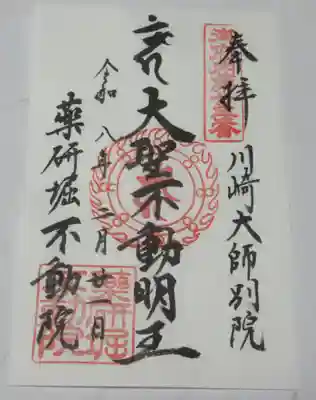 奉拝
川崎大師別院
大聖不動明王
令和八年二月廿一日
薬研堀不動院